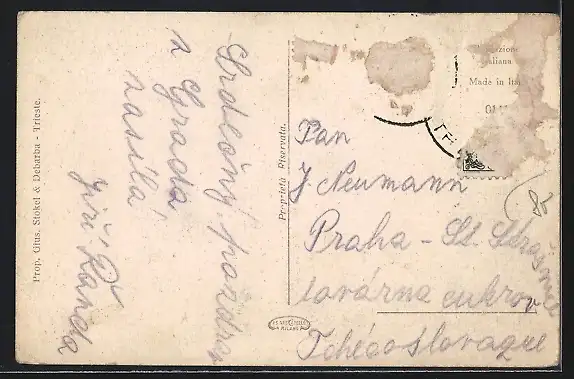 Prop. Gius. Stokel & Debarba - Trieste.
Srdečný pozdrav
z Grada
zasílá
Jiří Randa
Proprietà Riservata.
Made in Ital
Pan
J. Neumann
Praha - St. Strašnice
továrna cukrov
Tchécoslovaque